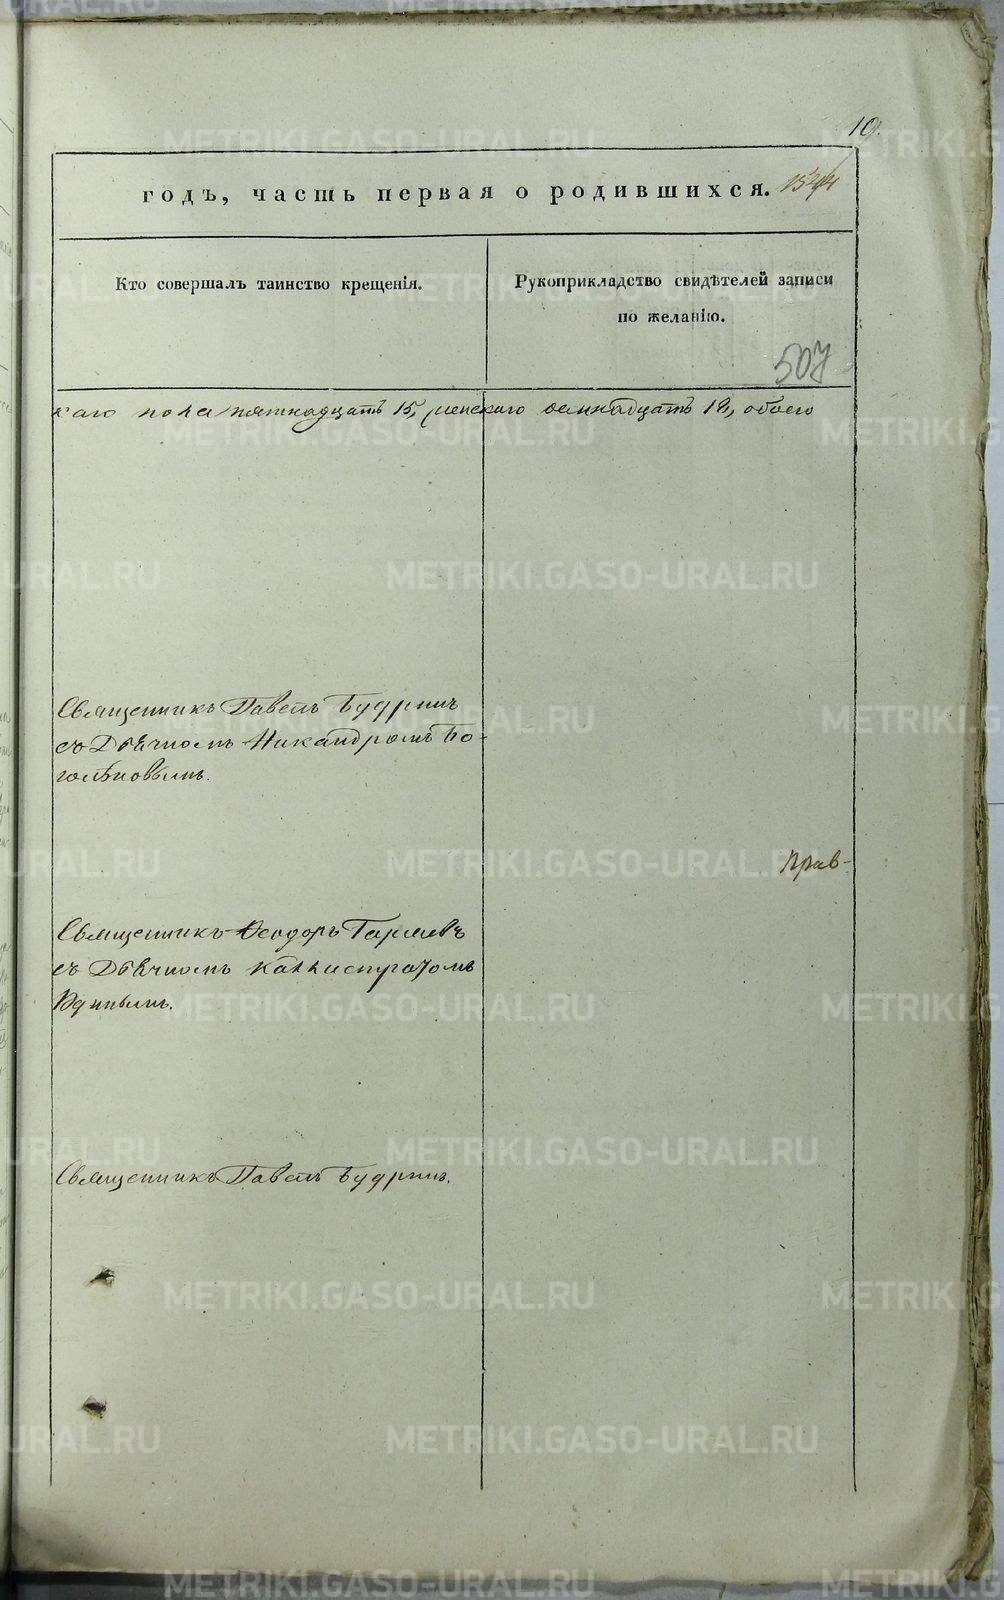 10.
годъ, часть первая о родившихся.
Кто совершалъ таинство крещенія.
Рукоприкладство свидѣтелей записи
по желанію.
507
каго пола пятнадцать 15, женскаго осмнадцать 18, обоего
Священникъ Павелъ Будринъ
съ Дьячкомъ Никандромъ Бо-
голѣповымъ.
Прав-
Священникъ Ѳеодоръ
съ Дьячкомъ Каллистратомъ
Священникъ Павелъ Будринъ.
METRIKI.GASO-URAL.RU